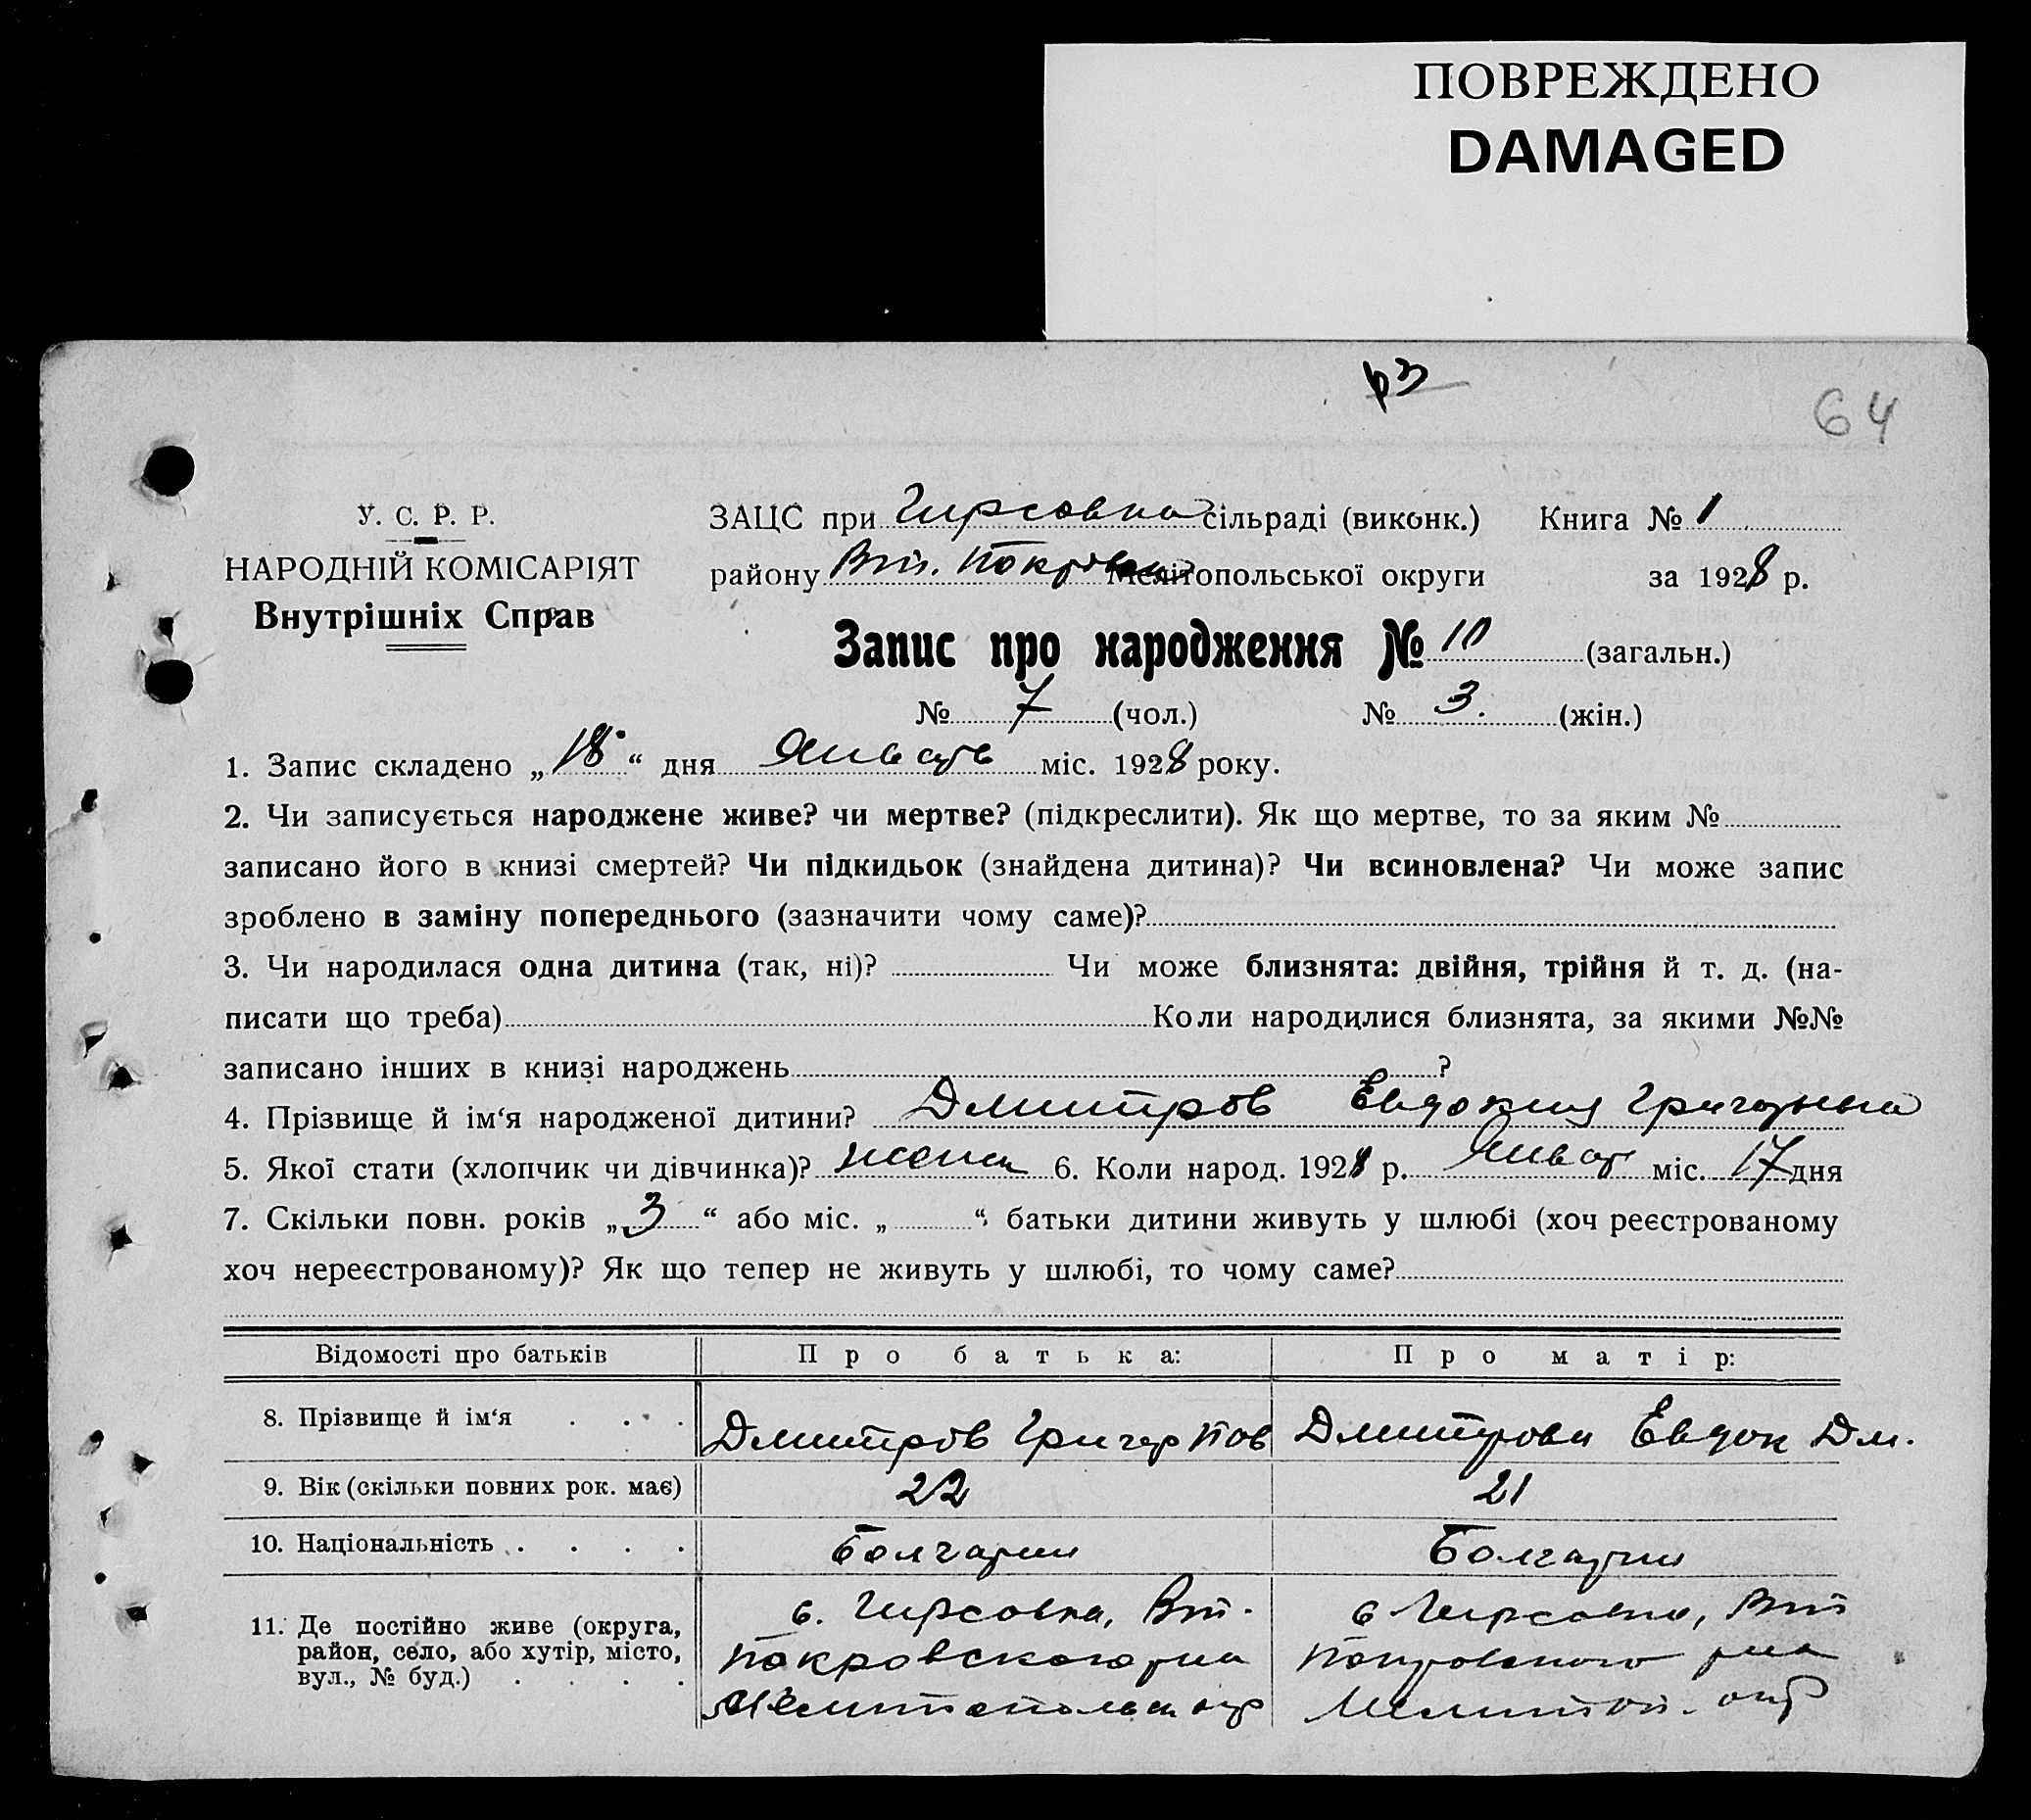 ПОВРЕЖДЕНО
DAMAGED
64
У. С. Р. Р.
НАРОДНІЙ КОМІСАРІЯТ
Внутрішніх Справ
ЗАЦС при Гирсовка сільраді (виконк.) Книга № 1
району Вт. Покровск Мелітопольської округи за 1928 р.
Запис про народження № 10 (загальн.)
№ 7 (чол.) № 3. (жін.)
1. Запис складено „18“ дня Январь міс. 1928 року.
2. Чи записується народжене живе? чи мертве? (підкреслити). Як що мертве, то за яким №
записано його в книзі смертей? Чи підкидьок (знайдена дитина)? Чи всиновлена? Чи може запис
зроблено в заміну попереднього (зазначити чому саме)?
3. Чи народилася одна дитина (так, ні)? Чи може близнята: двійня, трійня й т. д. (на-
писати що треба) Коли народилися близнята, за якими №№
записано інших в книзі народжень ?
4. Прізвище й ім‘я народженої дитини? Дмитров Евдокия Григорьева
5. Якої стати (хлопчик чи дівчинка)? женск 6. Коли народ. 1928 р. Январ міс. 17 дня
7. Скільки повн. років „3“ або міс. „ “ батьки дитини живуть у шлюбі (хоч реєстрованому
хоч нереєстрованому)? Як що тепер не живуть у шлюбі, то чому саме?
Відомості про батьків Про батька: Про матір:
8. Прізвище й ім‘я . . . . Дмитров Григор Пав Дмитрова Евдок Дм.
9. Вік (скільки повних рок. має) 22 21
10. Національність . . . . Болгарин Болгарин
11. Де постійно живе (округа, район, село, або хутір, місто, вул., № буд.) . . . .
с. Гирсовка, Вт.
Покровского р-на
Мелитопольск окр
с Гирсовка, Вт
Покровского р-на
Мелитоп. окр